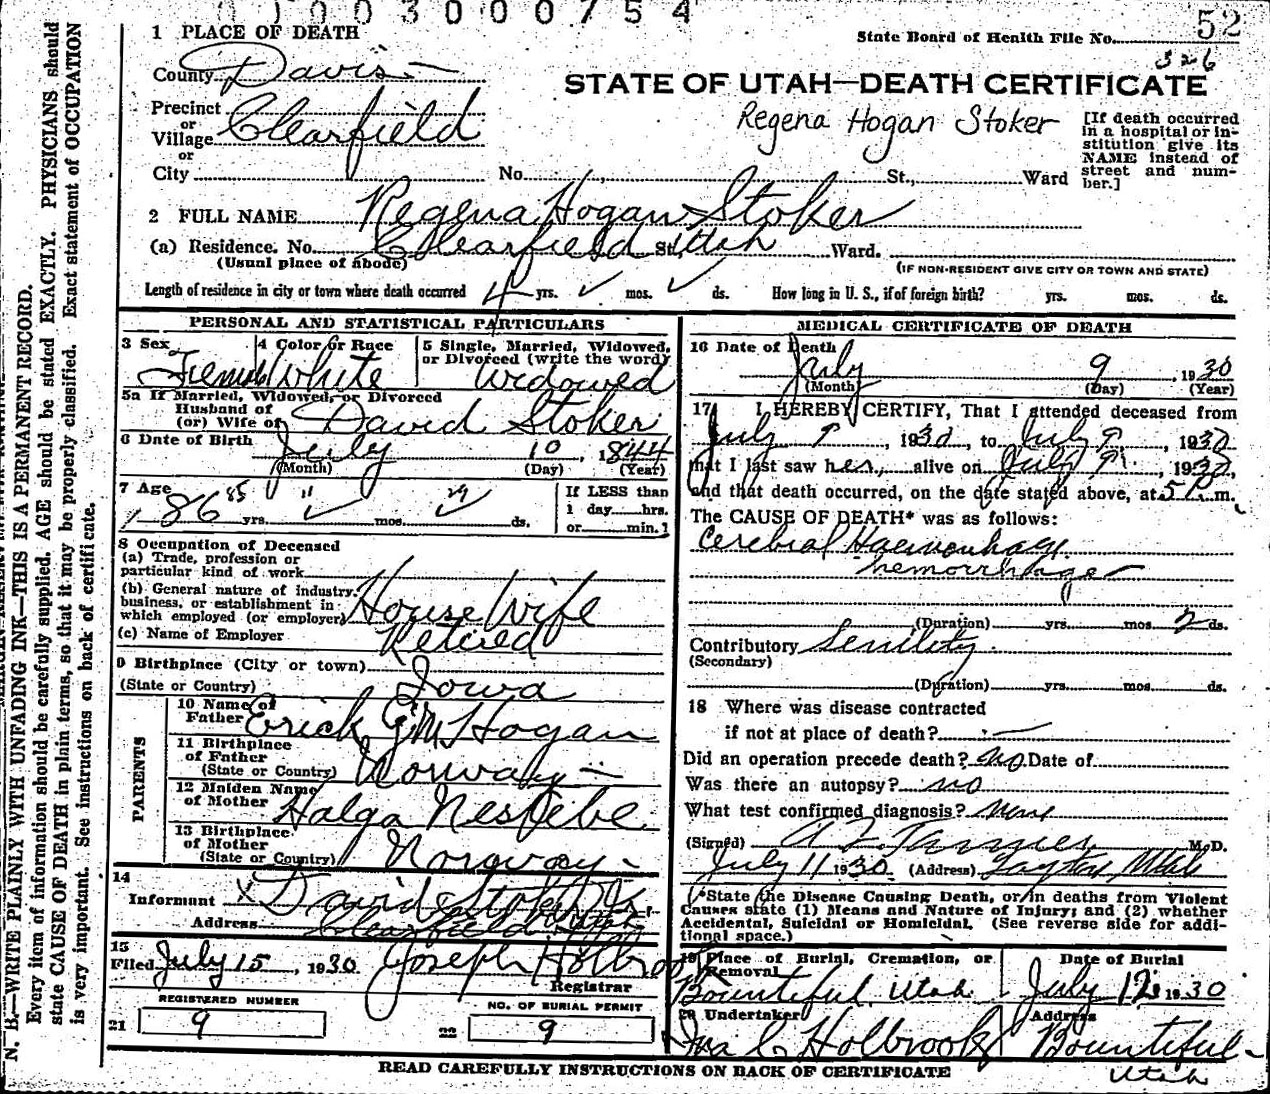 0 0 0 3 0 0 0 7 5 4
52
State Board of Health File No.
326
1 PLACE OF DEATH
County Davis
STATE OF UTAH—DEATH CERTIFICATE
Precinct
or
Village Clearfield
or
City No. St., Ward
Regena Hogan Stoker
[If death occurred
in a hospital or in-
stitution give its
NAME instead of
street and num-
ber.]
2 FULL NAME Regena Hogan Stoker
(a) Residence. No. Clearfield St., Utah Ward.
(Usual place of abode)
(IF NON-RESIDENT GIVE CITY OR TOWN AND STATE)
Length of residence in city or town where death occurred 4 yrs. ✓ mos. ✓ ds. How long in U. S., if of foreign birth? yrs. mos. ds.
PERSONAL AND STATISTICAL PARTICULARS
3 Sex 4 Color or Race 5 Single, Married, Widowed,
or Divorced (write the word)
Female White Widowed
5a If Married, Widowed, or Divorced
Husband of
(or) Wife of David Stoker
6 Date of Birth July 10, 1844
(Month) (Day) (Year)
7 Age 86 85 yrs. 11 mos. 29 ds.
If LESS than
1 day hrs.
or min.]
8 Occupation of Deceased
(a) Trade, profession or
particular kind of work
(b) General nature of industry,
business, or establishment in
which employed (or employer) House Wife
(c) Name of Employer Retired
9 Birthplace (City or town)
(State or Country) Iowa
PARENTS
10 Name of
Father Erick G M Hogan
11 Birthplace
of Father
(State or Country) Norway
12 Maiden Name
of Mother Halga
13 Birthplace
of Mother
(State or Country) Norway
14
Informant X David Stoker Jr.
Address Clearfield Utah
15
Filed July 15, 1930 Joseph Holbrook
Registrar
REGISTERED NUMBER NO. OF BURIAL PERMIT
21 9 22 9
MEDICAL CERTIFICATE OF DEATH
16 Date of Death
July 9, 1930
(Month) (Day) (Year)
17 I HEREBY CERTIFY, That I attended deceased from
July 9, 1930, to July 9, 1930
that I last saw her alive on July 9, 1930,
and that death occurred, on the date stated above, at 5 P.m.
The CAUSE OF DEATH* was as follows:
Cerebral
hemorrhage
(Duration) yrs. mos. 2 ds.
Contributory Senility
(Secondary)
(Duration) yrs. mos. ds.
18 Where was disease contracted
if not at place of death?
Did an operation precede death? no Date of
Was there an autopsy? no
What test confirmed diagnosis? none
(Signed) A Z Tanner M.D.
July 11 1930 (Address) Layton, Utah
*State the Disease Causing Death, or in deaths from Violent
Causes state (1) Means and Nature of Injury; and (2) whether
Accidental, Suicidal or Homicidal. (See reverse side for addi-
tional space.)
19 Place of Burial, Cremation, or Date of Burial
Removal
Bountiful Utah July 12 1930
20 Undertaker Address
Ira C Holbrook Bountiful
Utah
READ CAREFULLY INSTRUCTIONS ON BACK OF CERTIFICATE
N. B.—WRITE PLAINLY WITH UNFADING INK—THIS IS A PERMANENT RECORD.
Every item of information should be carefully supplied. AGE should be stated EXACTLY. PHYSICIANS should
state CAUSE OF DEATH in plain terms, so that it may be properly classified. Exact statement of OCCUPATION
is very important. See instructions on back of certificate.